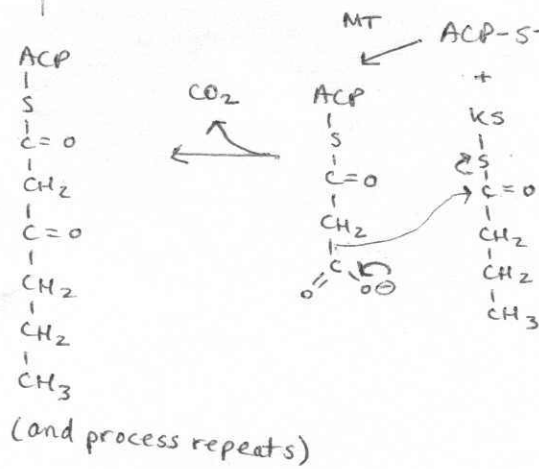 MT
ACP-S-
ACP
S
C=O
CH2
C=O
CH2
CH2
CH3
CO2
ACP
S
C=O
CH2
C
O O⊖
+
KS
S
C=O
CH2
CH2
CH3
(and process repeats)